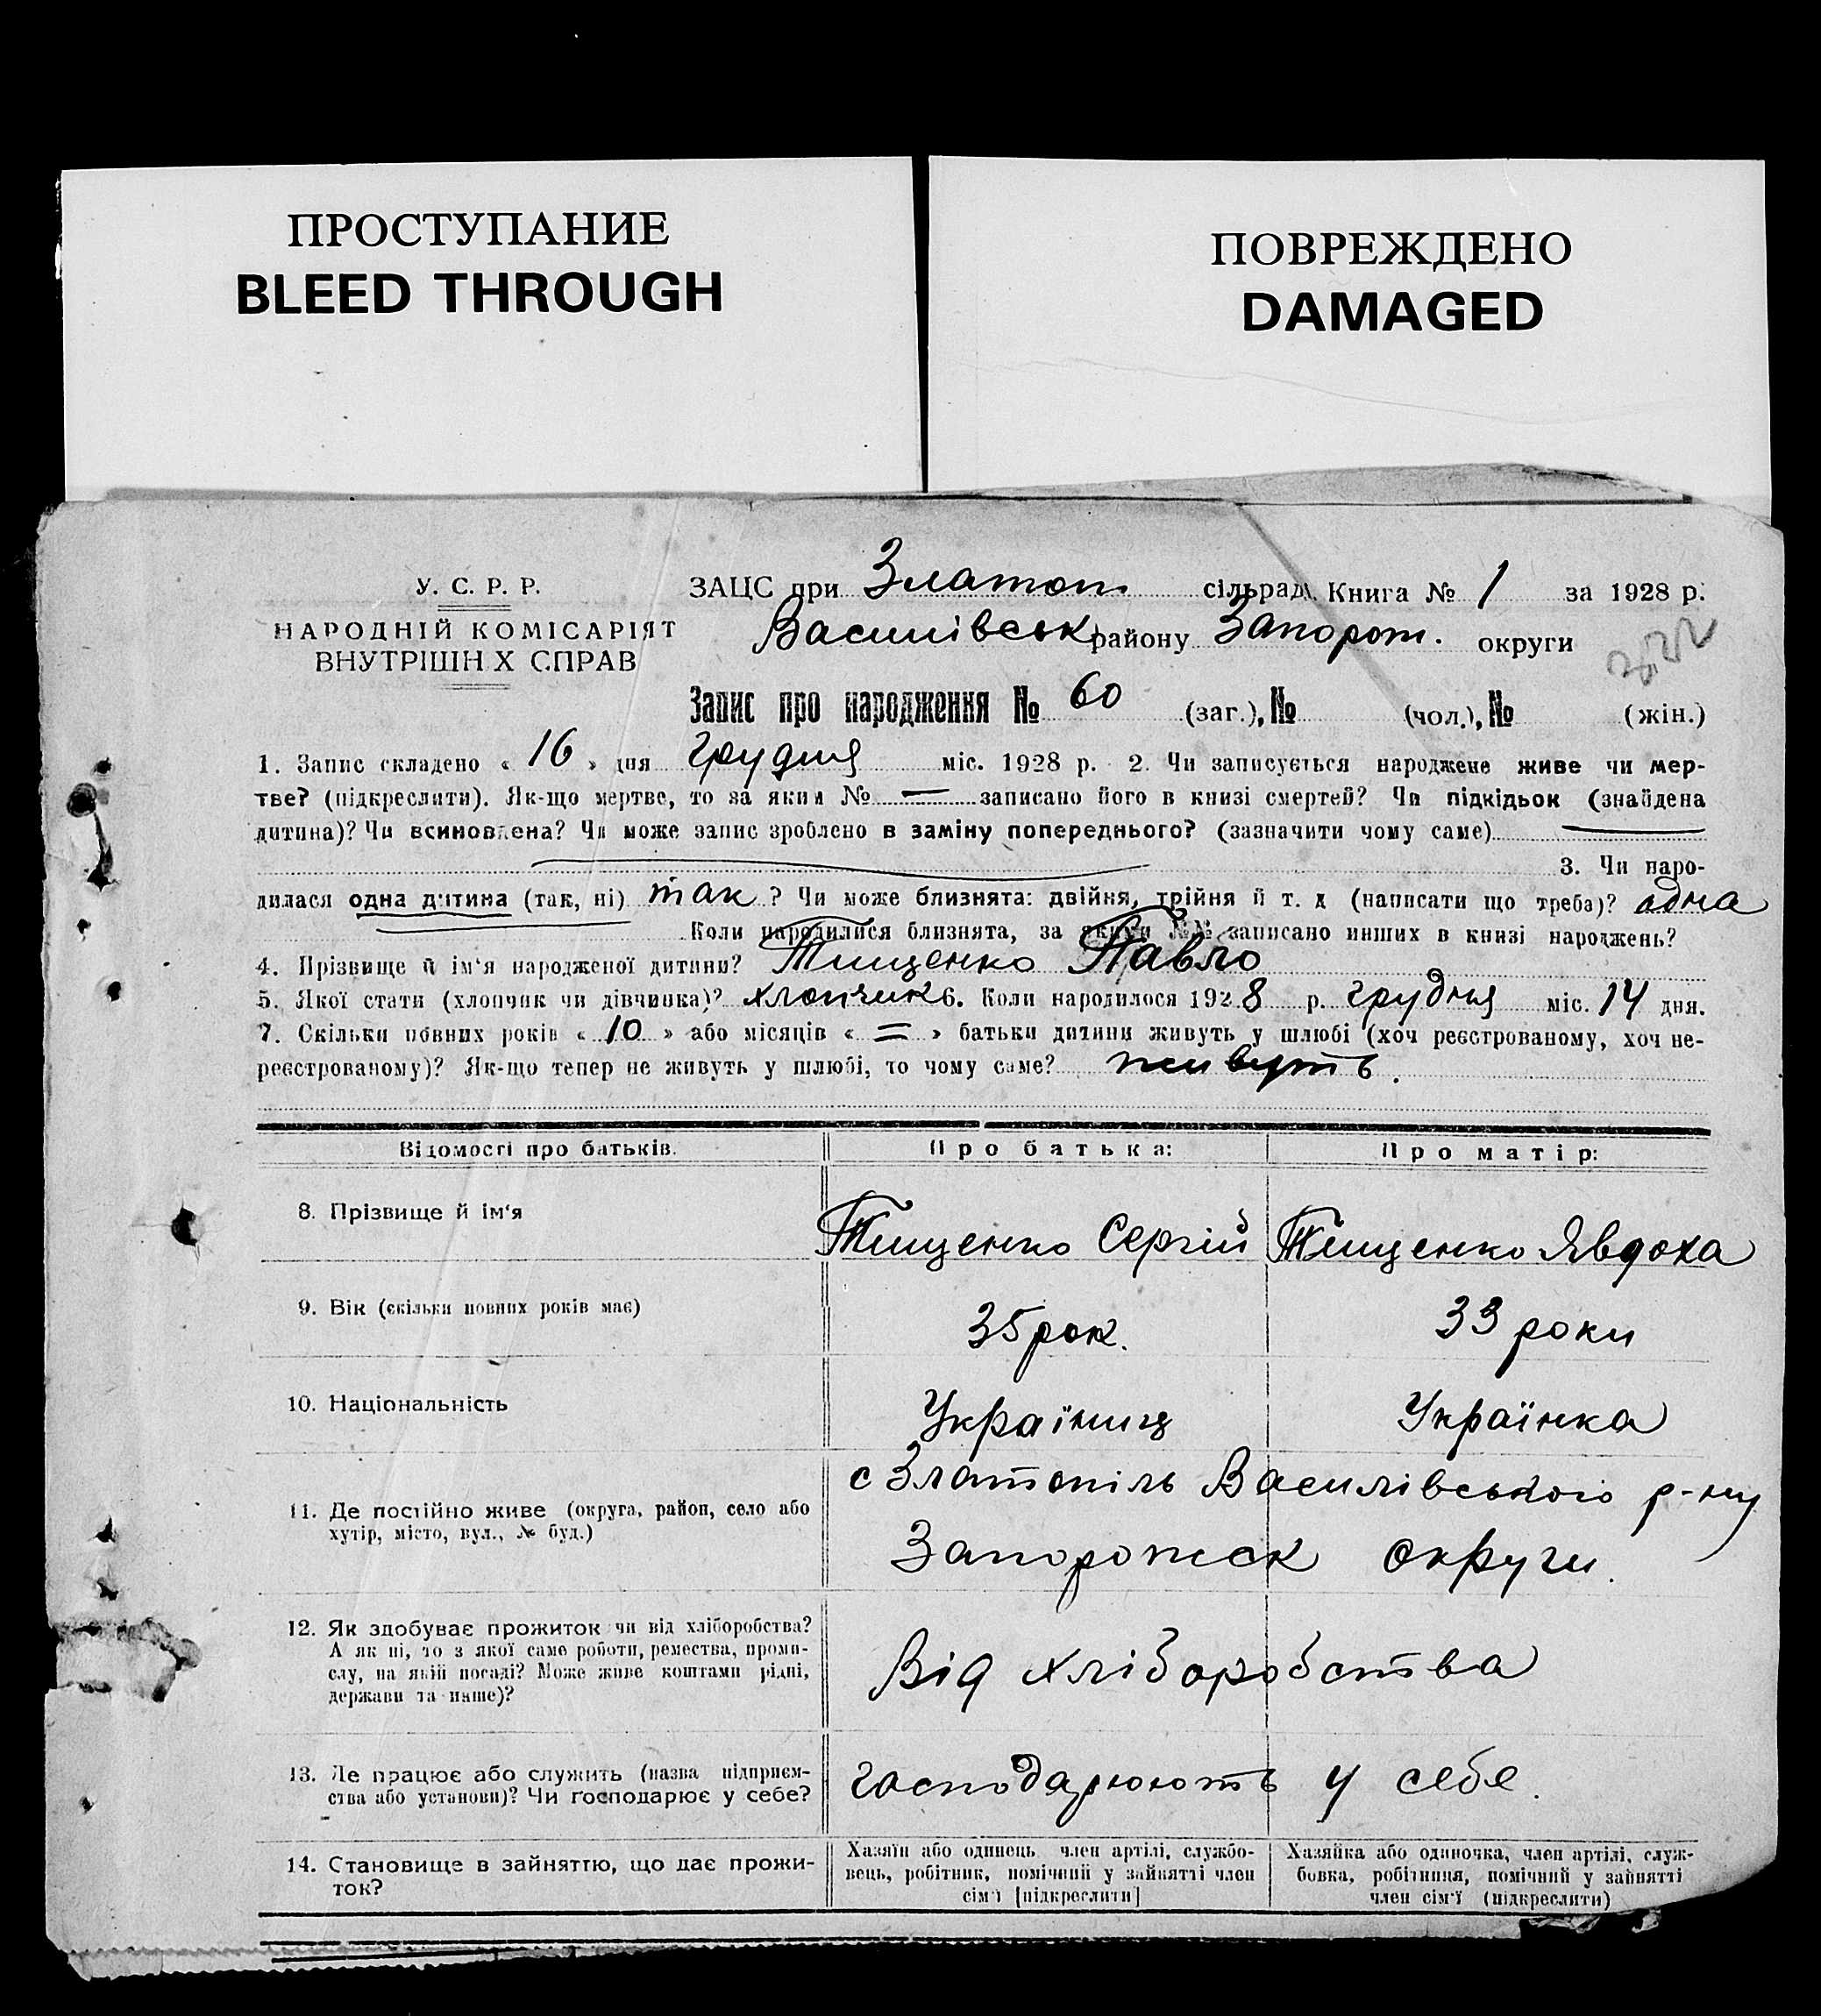 ПРОСТУПАНИЕ
BLEED THROUGH
ПОВРЕЖДЕНО
DAMAGED
У. С. Р. Р.
НАРОДНІЙ КОМІСАРІЯТ
ВНУТРІШН Х СПРАВ
ЗАЦС при Златоп. сільрад. Книга № 1 за 1928 р.
Василівськ району Запорож. округи
Запис про народження № 60 (заг.), № (чол.), № (жін.)
1. Запис складено « 16 » дня грудня міс. 1928 р. 2. Чи записується народжене живе чи мер-
тве? (підкреслити). Як-що мертве, то за яким № — записано його в книзі смертей? Чи підкідьок (знайдена
дитина)? Чи всиновлена? Чи може запис зроблено в заміну попереднього? (зазначити чому саме)
3. Чи наро-
дилася одна дитина (так, ні) так ? Чи може близнята: двійня, трійня й т. д (написати що треба)? одна
Коли народилися близнята, за якими №№ записано инших в книзі народжень?
4. Прізвище й ім‘я народженої дитини? Тищенко Павло
5. Якої стати (хлопчик чи дівчинка)? хлопчик 6. Коли народилося 1928 р. грудня міс. 14 дня.
7. Скільки повних років « 10 » або місяців « = » батьки дитини живуть у шлюбі (хоч реєстрованому, хоч не-
реєстрованому)? Як-що тепер не живуть у шлюбі, то чому саме? живуть.
Відомості про батьків. Про батька: Про матір:
8. Прізвище й ім‘я Тищенко Сергій Тищенко Явдоха
9. Вік (скільки повних років має) 35 рок. 33 роки
10. Національність Українць Українка
с Златопіль Василівського р-ну
11. Де постійно живе (округа, район, село або
хутір, місто, вул., № буд.)
Запорожск округи.
12. Як здобуває прожиток чи від хліборобства?
А як ні, то з якої саме роботи, ремества, проми-
слу, на якій посаді? Може живе коштами рідні,
держави та инше)?
Від хліборобства
13. Де працює або служить (назва підприєм-
ства або установи)? Чи господарює у себе?
господарюють у себе.
14. Становище в зайняттю, що дає прожи-
ток?
Хазяїн або одинець член артілі, службо-
вець, робітник, помічний у зайнятті член
сім‘ї [підкреслити]
Хазяйка або одиночка, член артілі, служ-
бовка, робітниця, помічний у зайнятті
член сім‘ї (підкреслити)